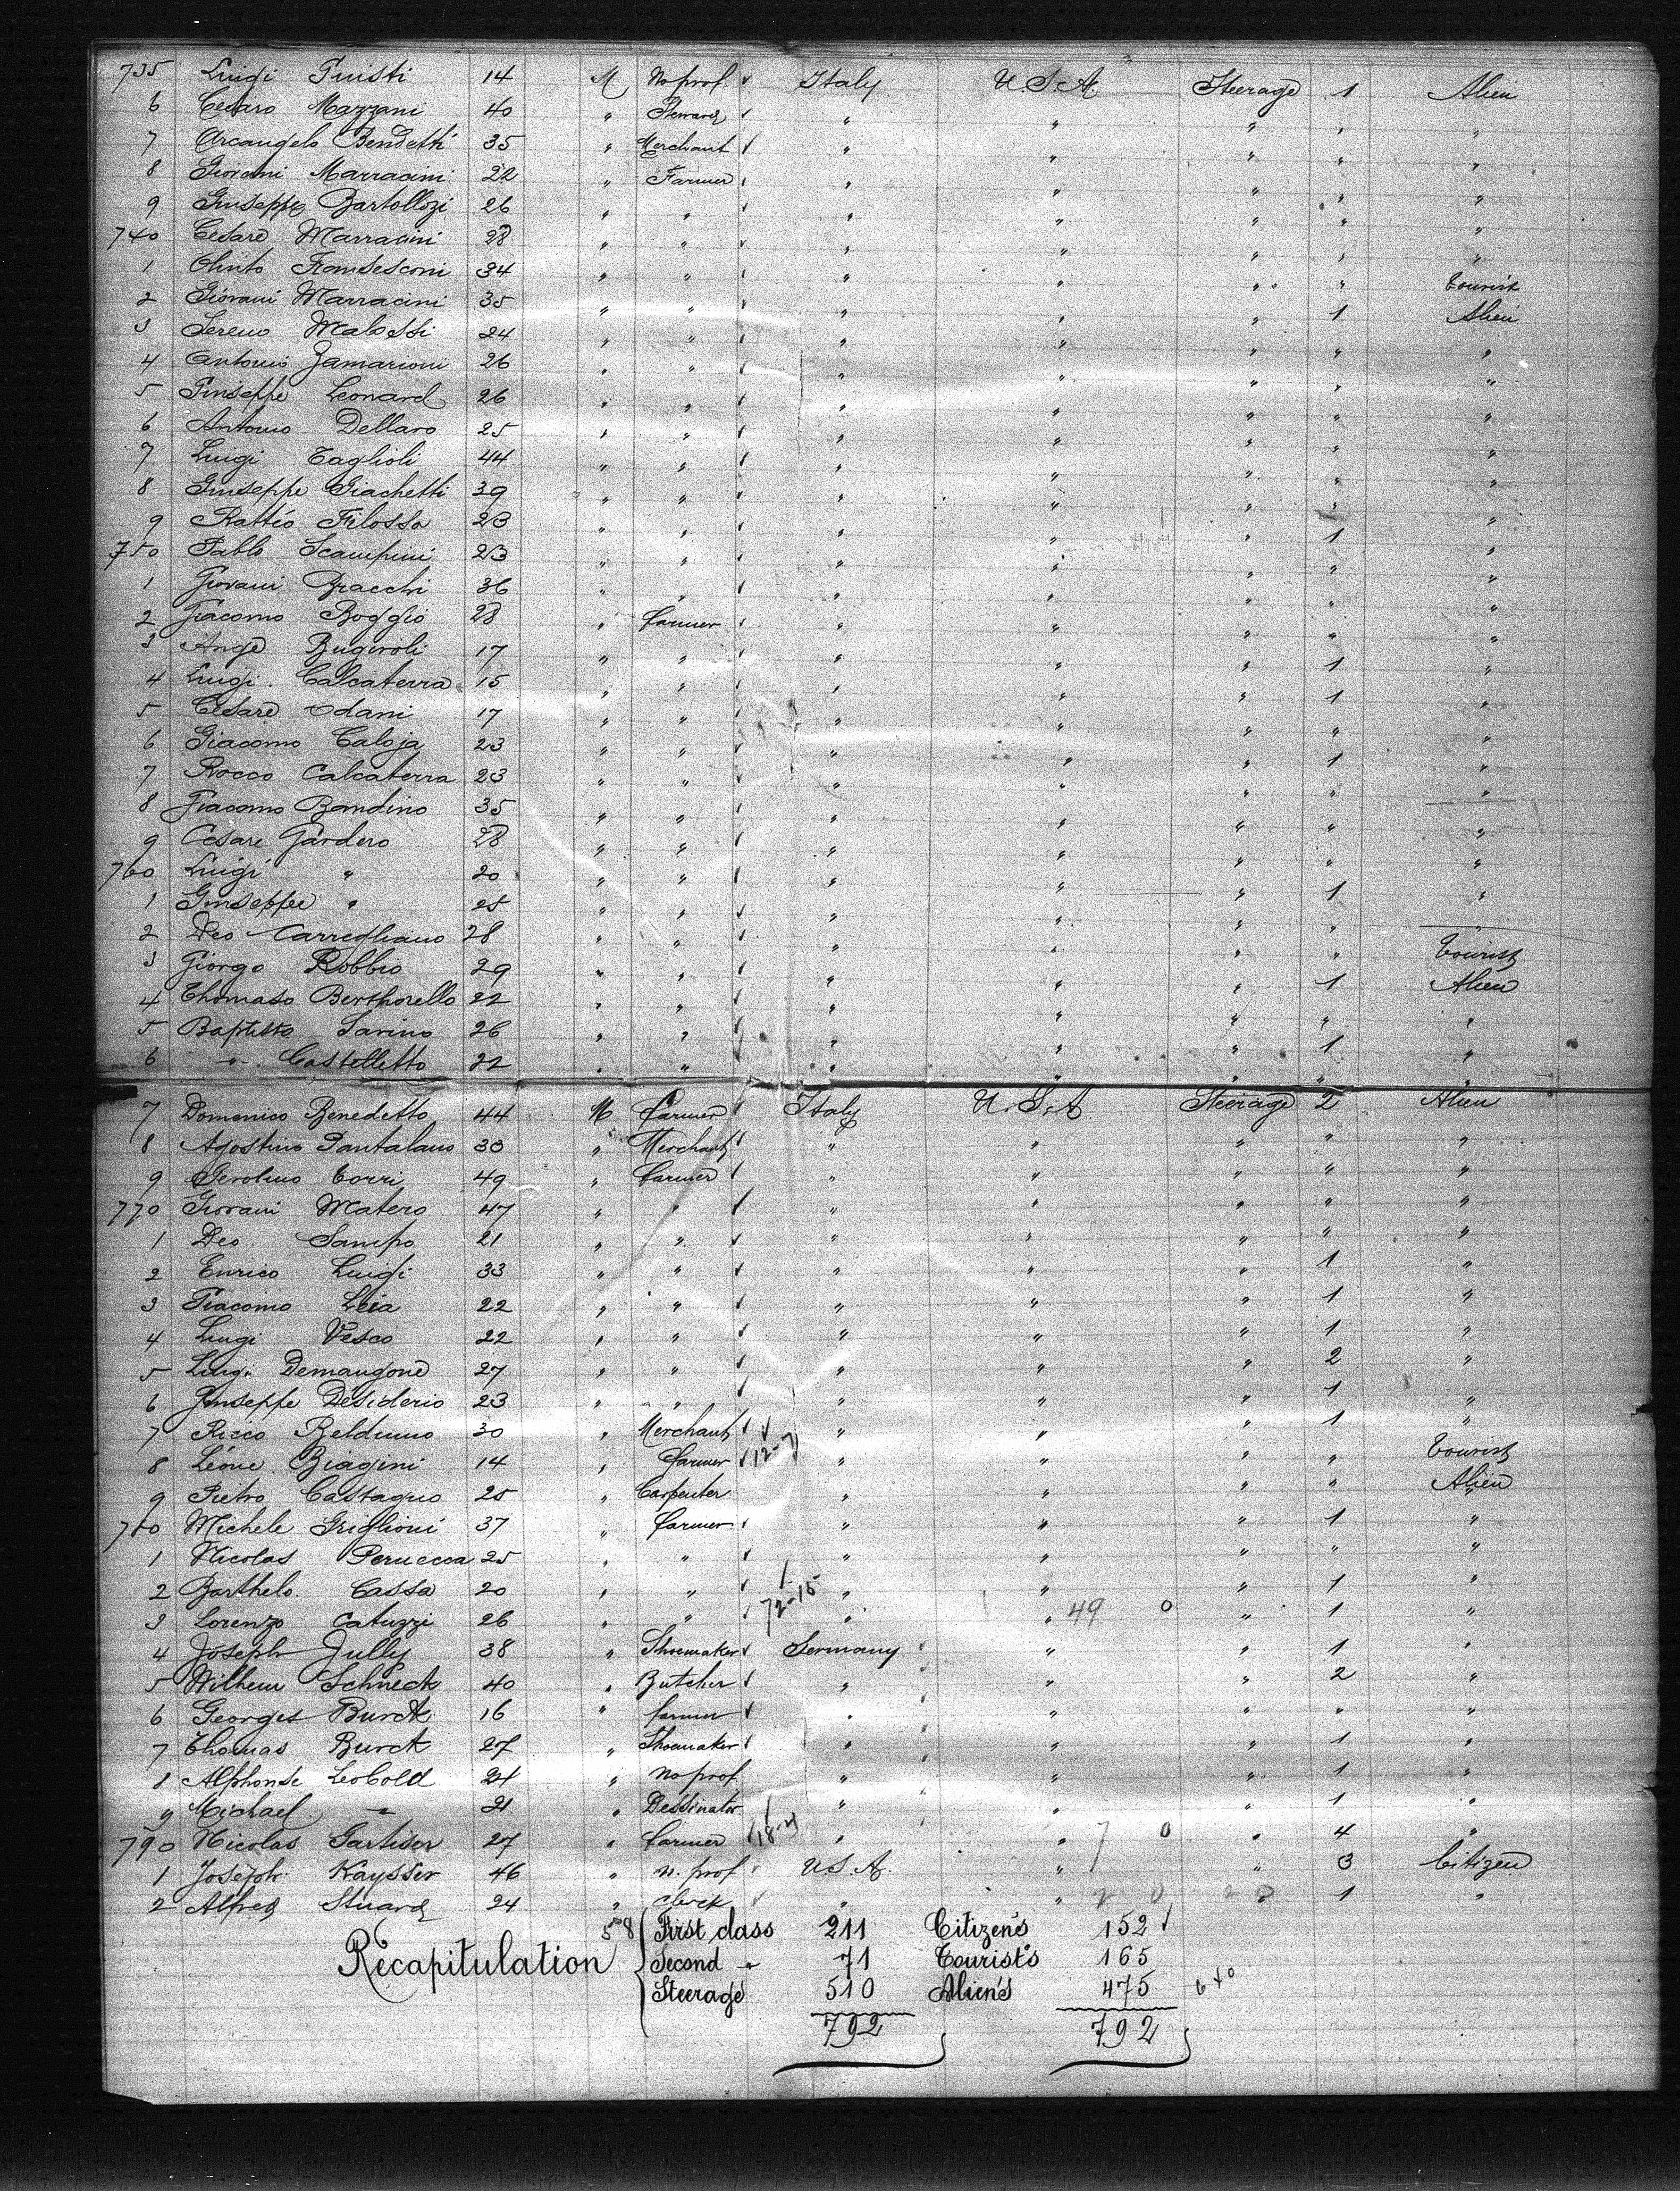 735 Luigi Guisti 14 M No prof ✓ Italy U.S.A. Steerage 1 Alien
6 Cesaro Mazzani 40 " Steward ✓ " " " " "
7 Arcangelo Bendetti 35 " Merchant ✓ " " " " "
8 Giovani Marracini 22 " Farmer " " " " "
9 Giuseppe Bartollozi 26 " " ✓ " " " " "
740 Cesare Marracini 28 " " ✓ " " " " "
1 Olinto Fransesconi 34 " " " " " " Tourist
2 Giovani Marracini 35 " " ✓ " " " 1 Alien
3 Sereno Malossi 24 " " ✓ " " " " "
4 Antonio Zamarioni 26 " " ✓ " " " " "
5 Giuseppe Leonard 26 " " ✓ " " " " "
6 Antonio Dellaro 25 " " ✓ " " " " "
7 Luigi Taglioli 44 " " ✓ " " " " "
8 Giuseppe Giachetti 39 " " ✓ " " " " "
9 Rattéo Filossa 23 " " ✓ " " " 1 "
750 Pablo Scampini 23 " " ✓ " " " " "
1 Giovani Bracchi 36 " " ✓ " " " " "
2 Giacomo Boggio 28 " Farmer " " " " "
3 Ange Bugiroli 17 " " ✓ " " " 1 "
4 Luigi Calcaterra 15 " " ✓ " " " 1 "
5 Cesare Odani 17 " " ✓ " " " " "
6 Giacomo Caloja 23 " " ✓ " " " 1 "
7 Rocco Calcaterra 23 " " ✓ " " " " "
8 Giacomo Bondino 35 " " ✓ " " " " "
9 Cesare Gardero 28 " " ✓ " " " " "
760 Luigi " 20 " " ✓ " " " 1 "
1 Giuseppe " 25 " " ✓ " " " " "
2 Deo Carregliano 28 " " ✓ " " " " Tourist
3 Giorgo Robbio 29 " " ✓ " " " 1 Alien
4 Thomaso Berthorello 22 " " ✓ " " " " "
5 Baptisto Savino 26 " " ✓ " " " 1 "
6 " Castelletto 22 " " ✓ " " " " "
7 Domenico Benedetto 44 M Farmer ✓ Italy U.S.A Steerage 2 Alien
8 Agostino Pantalano 33 " Merchant ✓ " " " " "
9 Gerolino Corri 49 " Farmer ✓ " " " " "
770 Giovani Matero 47 " " ✓ " " " " "
1 Deo Sampo 21 " " ✓ " " " " "
2 Enrico Luigi 33 " " ✓ " " " 1 "
3 Giacomo Leia 22 " " ✓ " " " 1 "
4 Luigi Vesco 22 " " ✓ " " " 1 "
5 Luigi Demangone 27 " " ✓ " " " 2 "
6 Giuseppe Désiderio 23 " " ✓ " " " 1 "
7 Ricco Belduino 30 " Merchant ✓ ✓ " " " 1 "
8 Léone Biagini 14 " Farmer ✓ 12-7 " " " " Tourist
9 Pietro Castagno 25 " Carpenter " " " " Alien
780 Michele Griglioni 37 " Farmer ✓ " " " 1 "
1 Nicolas Peruecca 25 " " ✓ " " " " "
2 Barthelo. Cassa 20 " " ✓ 72-15 " " " 1 "
3 Lorenzo Catuzzi 26 " " ✓ " " 49 0 " 1 "
4 Joseph Jully 38 " Shoemaker ✓ Germany " " 1 "
5 Wilhem Schneck 40 " Butcher ✓ " " " 2 "
6 Georges Burck 16 " Farmer ✓ " " " " "
7 Thomas Burck 27 " Shoemaker ✓ " " " 1 "
8 Alphonse Leobold 24 " no prof " " " 1 "
9 Michael " 21 " Dessinator " " " 1 "
790 Nicolas Gartiser 27 " Farmer ✓ 18-4 " " 7 0 " 4 "
1 Joseph Kaysser 46 " n. prof ✓ U.S.A. " " 3 Citizen
2 Alfred Stuard 24 " Clerck ✓ " " 2 0 20 1 "
Recapitulation 578 { First class 211 Citizen's 152 ✓
Second " 71 Tourist's 165
Steerage 510 Alien's 475 640
792 792